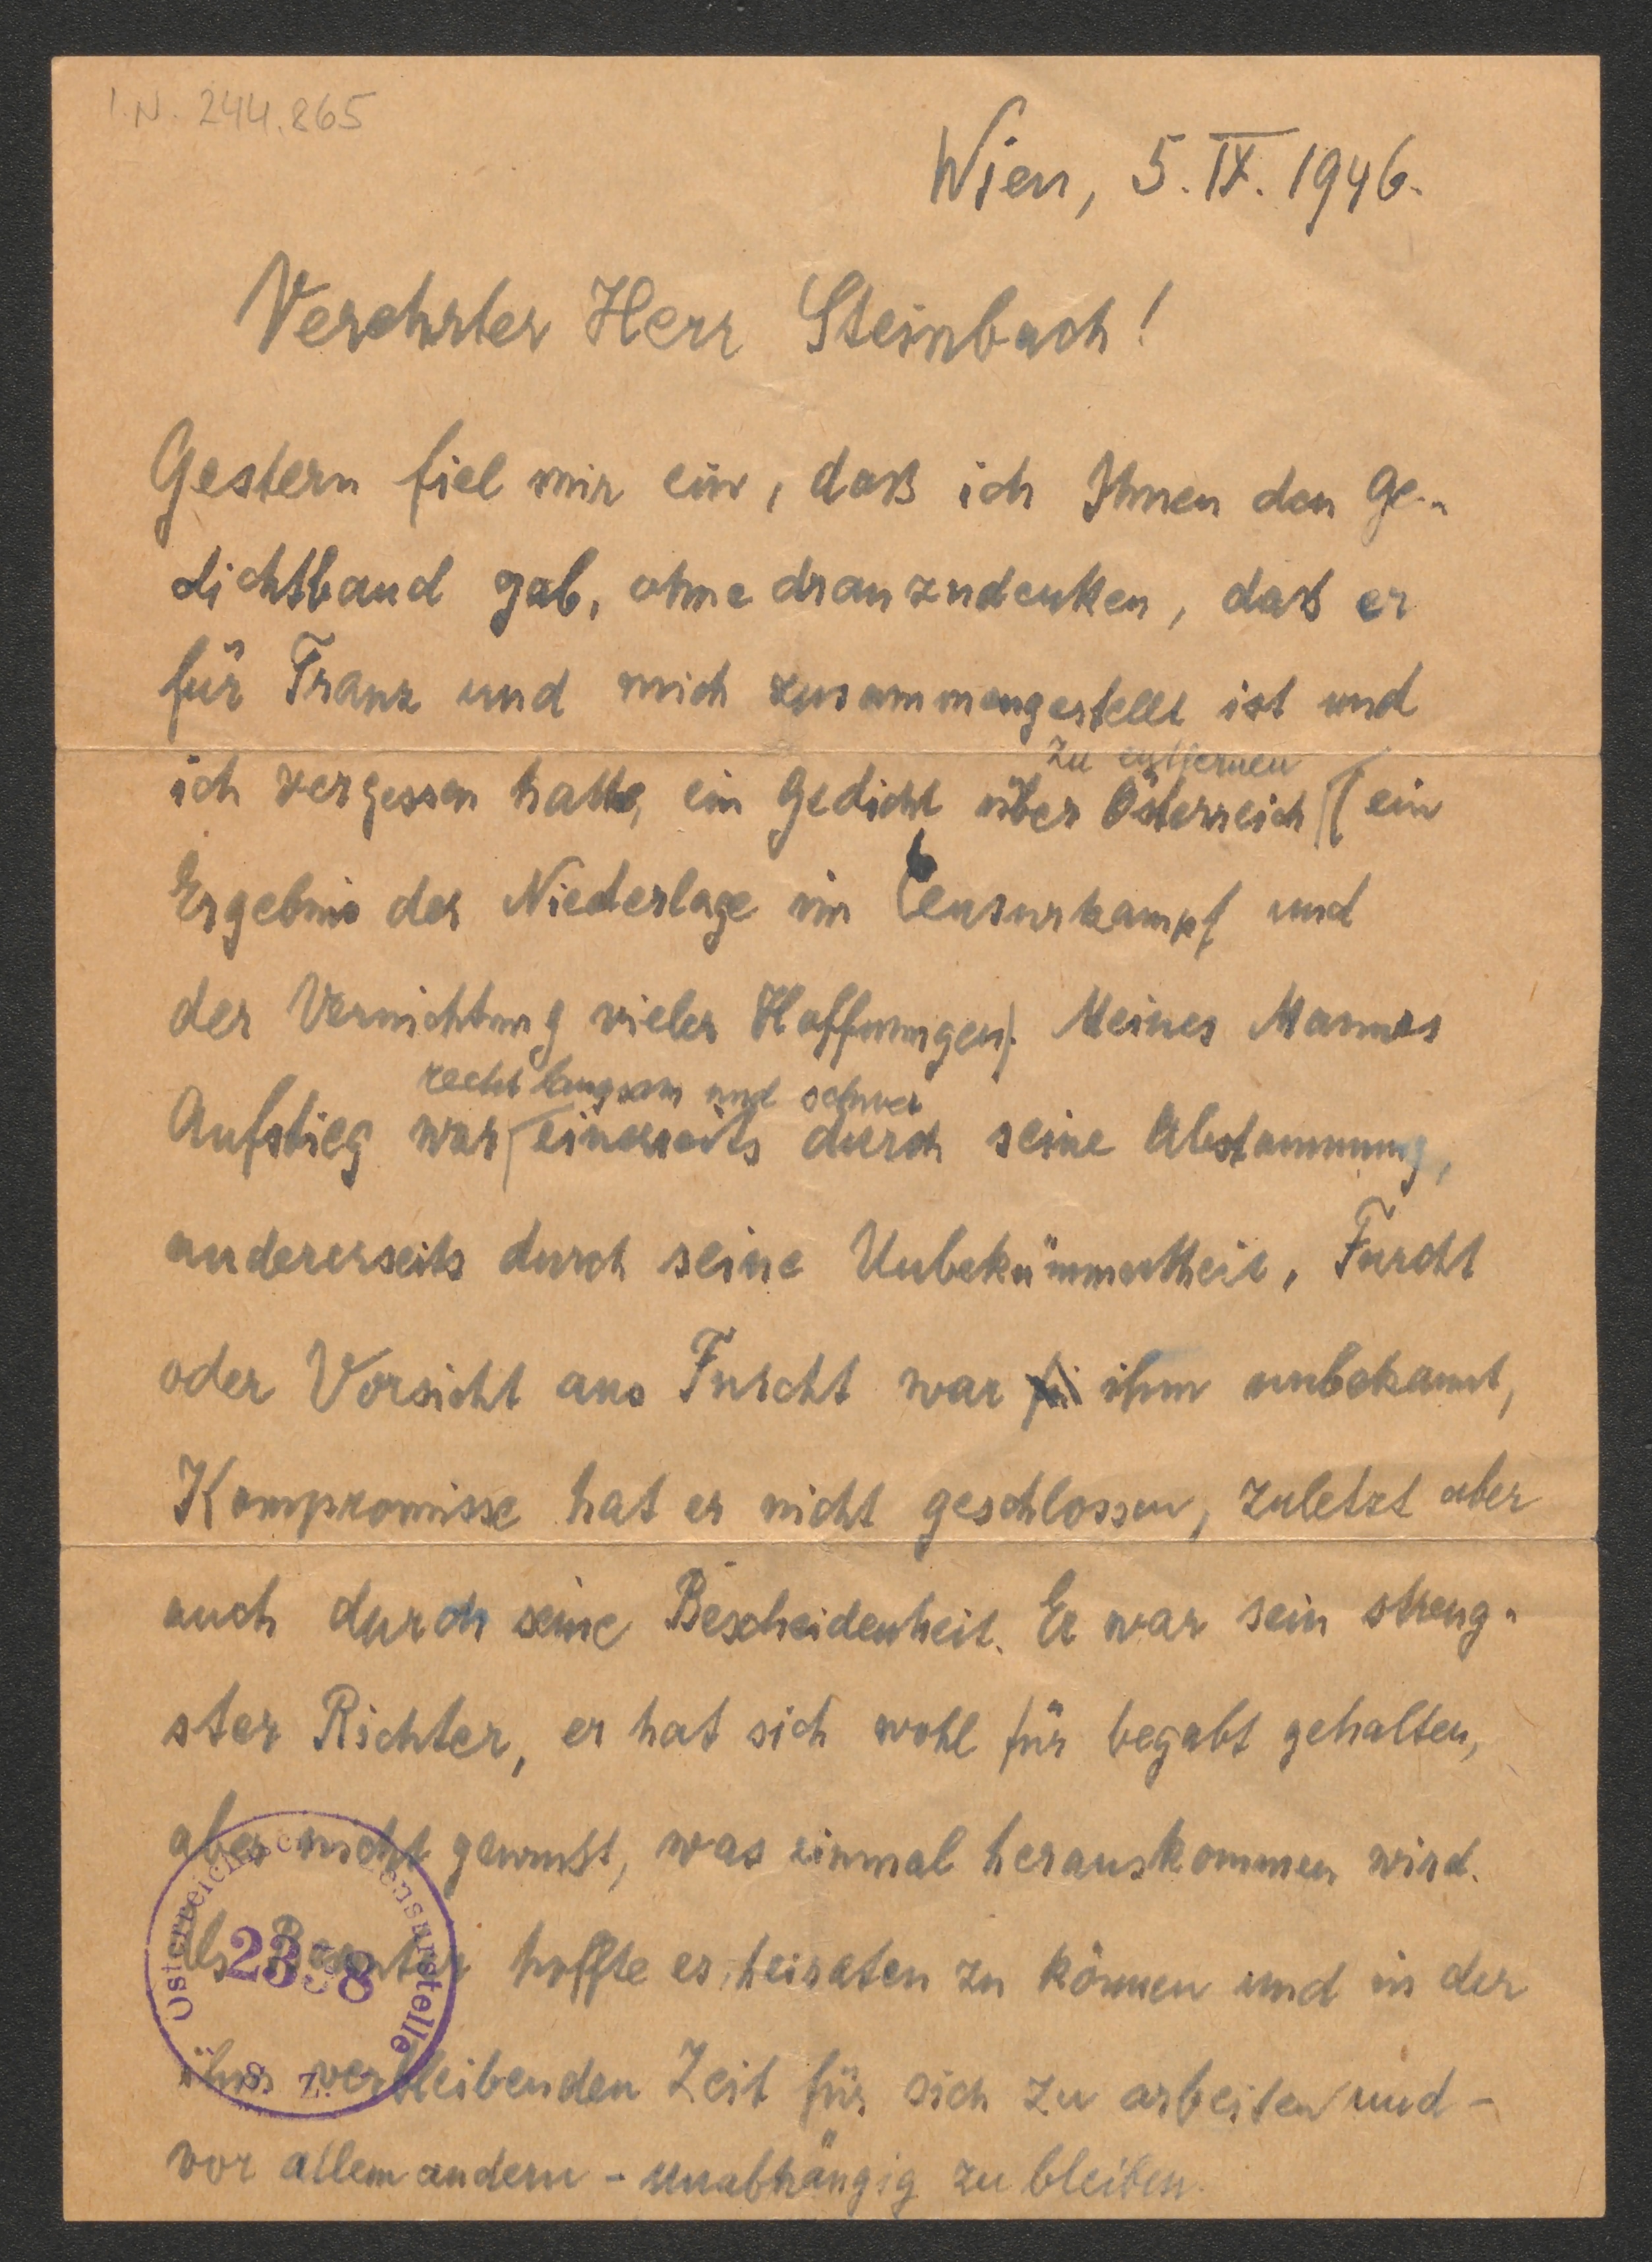 I.N. 244.865
Wien, 5. IX. 1946.
Verehrter Herr Steinbach!
Gestern fiel mir ein, daß ich Ihnen den Ge-
dichtband gab, ohne dranzudenken, daß er
für Franz und mich zusammengestellt ist und
zu entfernen
ich vergessen hatte, ein Gedicht über Österreich (ein
Ergebnis der Niederlage im Censurkampf und
der Vernichtung vieler Hoffnungen). Meines Mannes
recht langsam und schwer
Aufstieg war einerseits durch seine Abstammung,
andererseits durch seine Unbekümmertheit, Furcht
oder Vorsicht aus Furcht war ihm unbekannt,
Kompromisse hat er nicht geschlossen, zuletzt aber
auch durch seine Bescheidenheit. Er war sein streng-
ster Richter, er hat sich wohl für begabt gehalten,
aber nicht gewußt, was einmal herauskommen wird.
Als Beamter hoffte er, heiraten zu können und in der
ihm verbleibenden Zeit für sich zu arbeiten und -
vor allem andern - unabhängig zu bleiben.
Österreichische Zensurstelle
Z. S.